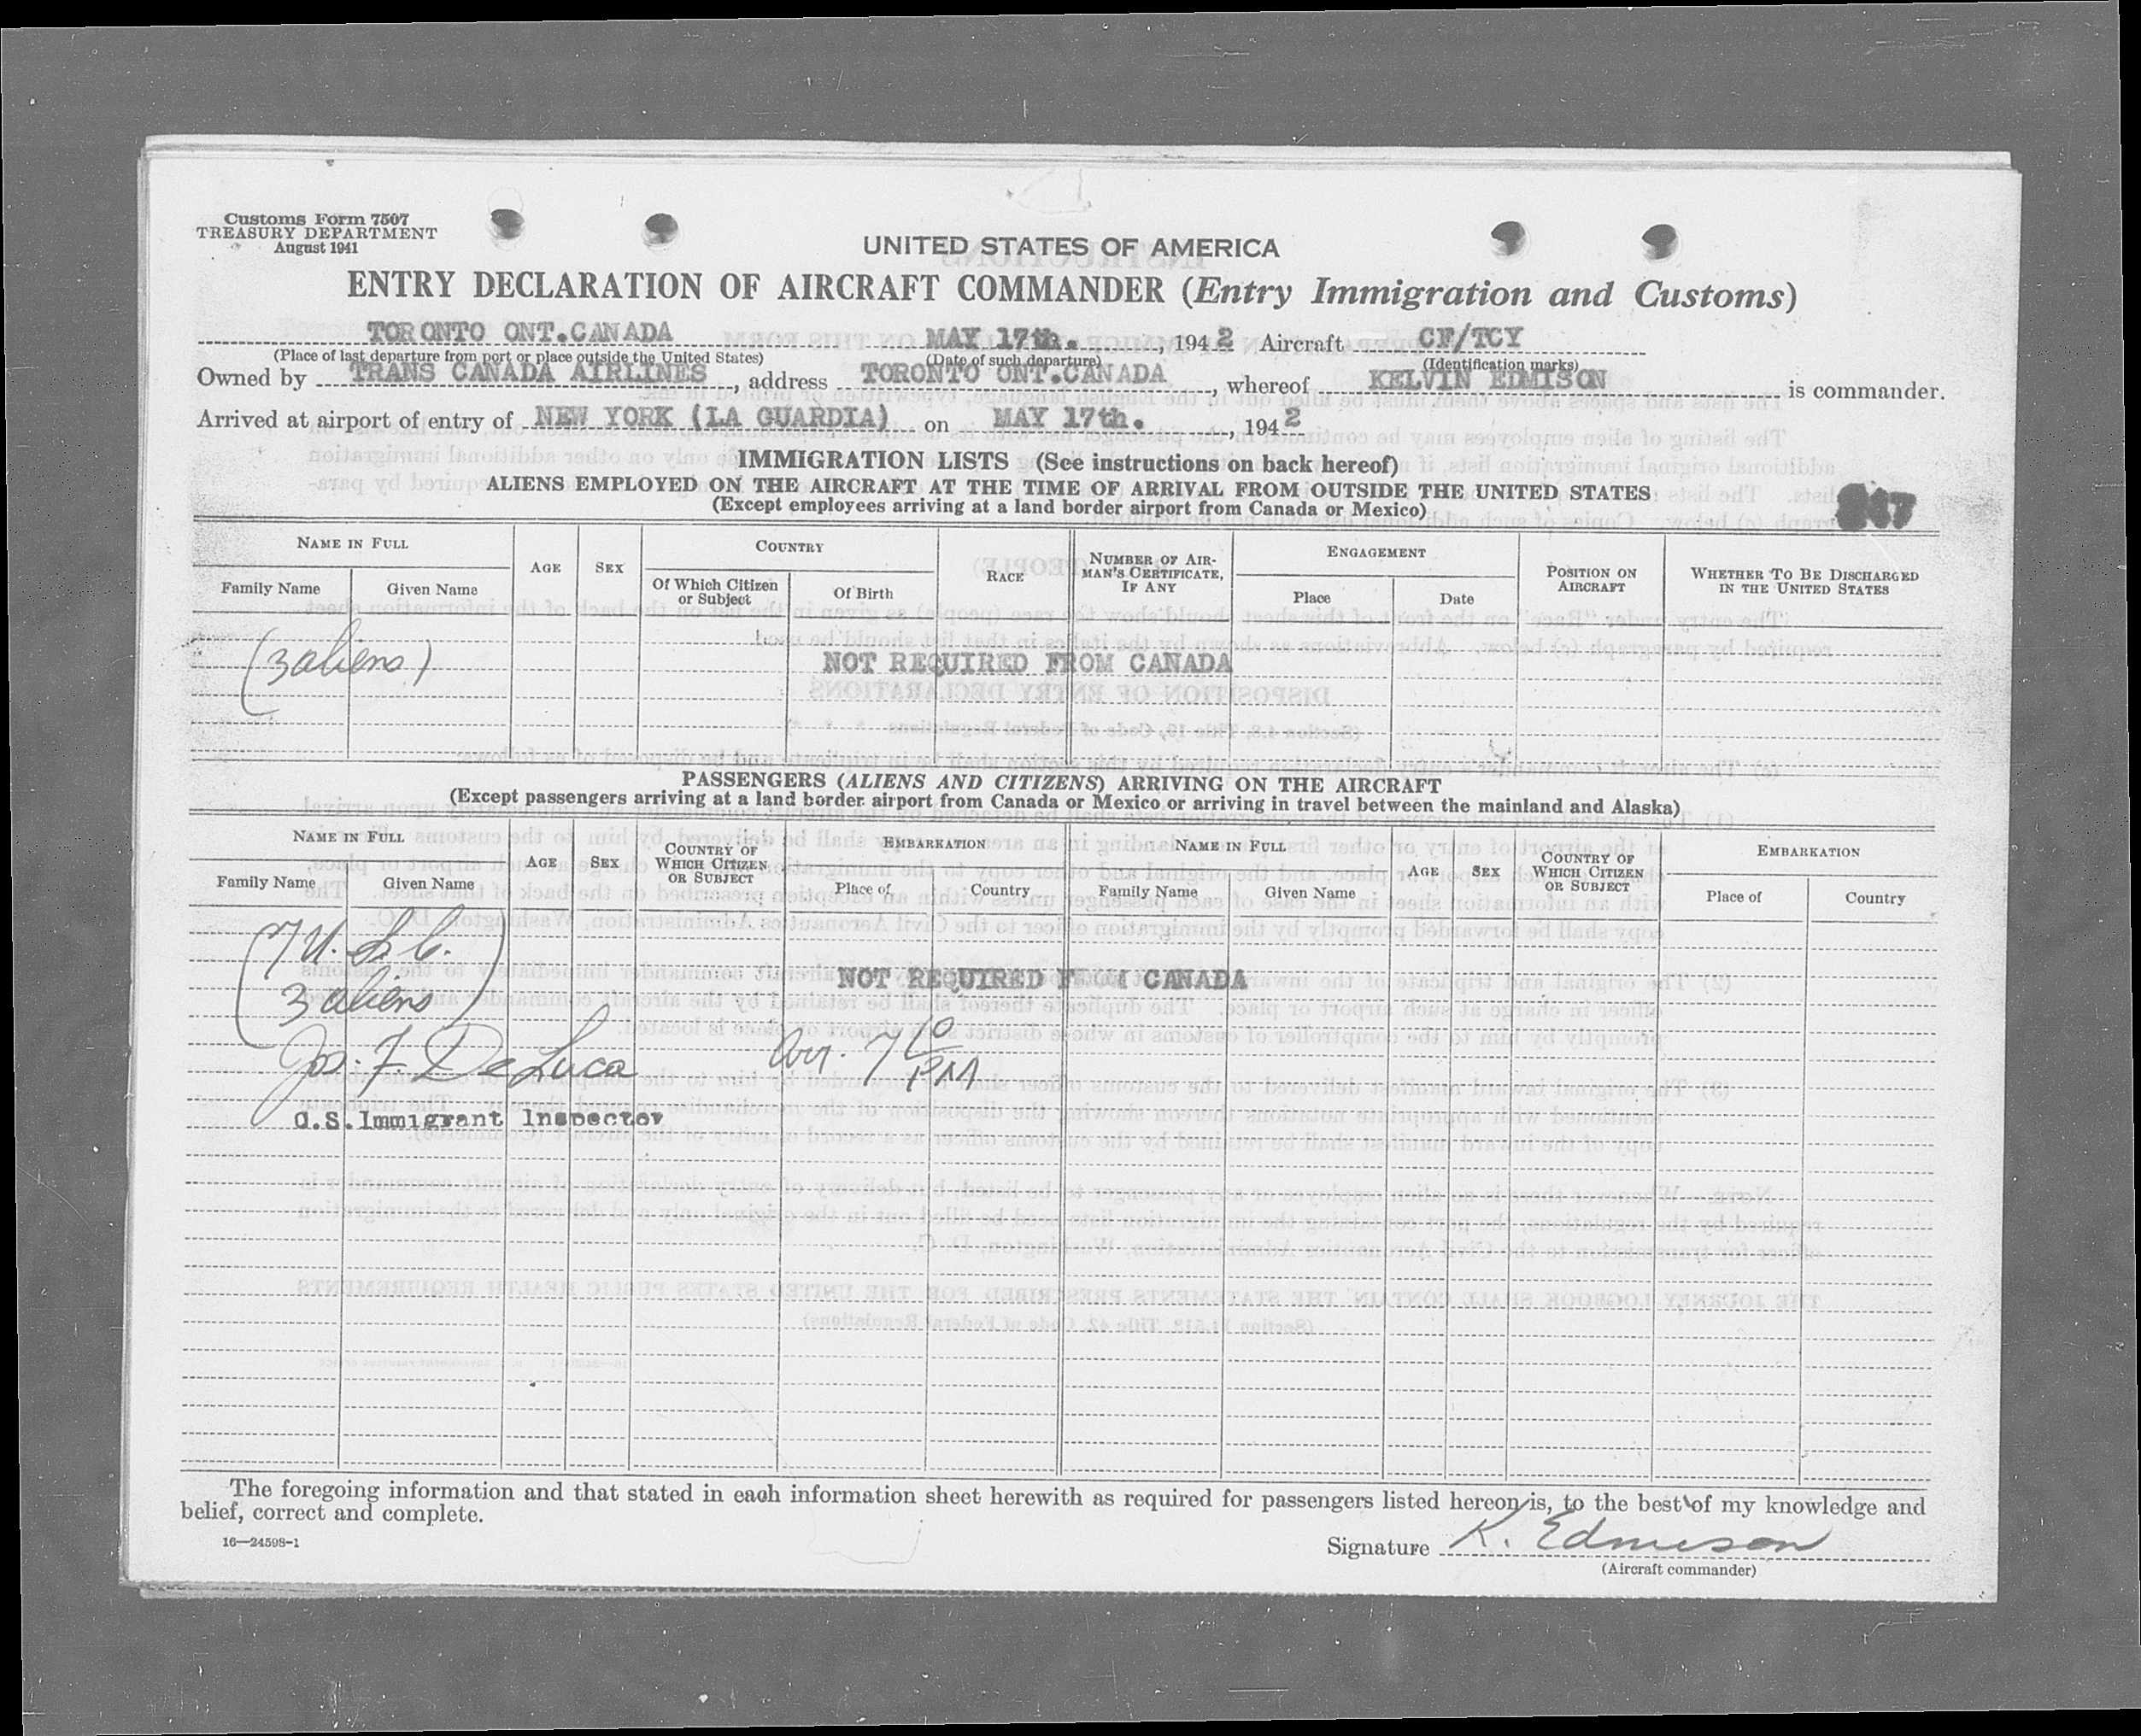 Customs Form 7507
TREASURY DEPARTMENT
August 1941
UNITED STATES OF AMERICA
ENTRY DECLARATION OF AIRCRAFT COMMANDER (Entry Immigration and Customs)
TORONTO ONT.CANADA MAY 17th. , 194 2 Aircraft CF/TCY
(Place of last departure from port or place outside the United States) (Date of such departure) (Identification marks)
Owned by TRANS CANADA AIRLINES , address TORONTO ONT.CANADA , whereof KELVIN EDMISON is commander.
Arrived at airport of entry of NEW YORK (LA GUARDIA) on MAY 17th. , 194 2
IMMIGRATION LISTS (See instructions on back hereof)
ALIENS EMPLOYED ON THE AIRCRAFT AT THE TIME OF ARRIVAL FROM OUTSIDE THE UNITED STATES
(Except employees arriving at a land border airport from Canada or Mexico)
NAME IN FULL AGE SEX COUNTRY RACE NUMBER OF AIRMAN'S CERTIFICATE, IF ANY ENGAGEMENT POSITION ON AIRCRAFT WHETHER TO BE DISCHARGED IN THE UNITED STATES
Family Name Given Name Of Which Citizen or Subject Of Birth Place Date
(3 aliens)
NOT REQUIRED FROM CANADA
PASSENGERS (ALIENS AND CITIZENS) ARRIVING ON THE AIRCRAFT
(Except passengers arriving at a land border airport from Canada or Mexico or arriving in travel between the mainland and Alaska)
NAME IN FULL AGE SEX COUNTRY OF WHICH CITIZEN OR SUBJECT EMBARKATION NAME IN FULL AGE SEX COUNTRY OF WHICH CITIZEN OR SUBJECT EMBARKATION
Family Name Given Name Place of Country Family Name Given Name Place of Country
(7 U.S.C.
3 aliens)
NOT REQUIRED FROM CANADA
Jos. F. DeLuca Arr. 7 10 PM
U.S. Immigrant Inspector
The foregoing information and that stated in each information sheet herewith as required for passengers listed hereon is, to the best of my knowledge and
belief, correct and complete.
16—24598-1
Signature K. Edmison
(Aircraft commander)